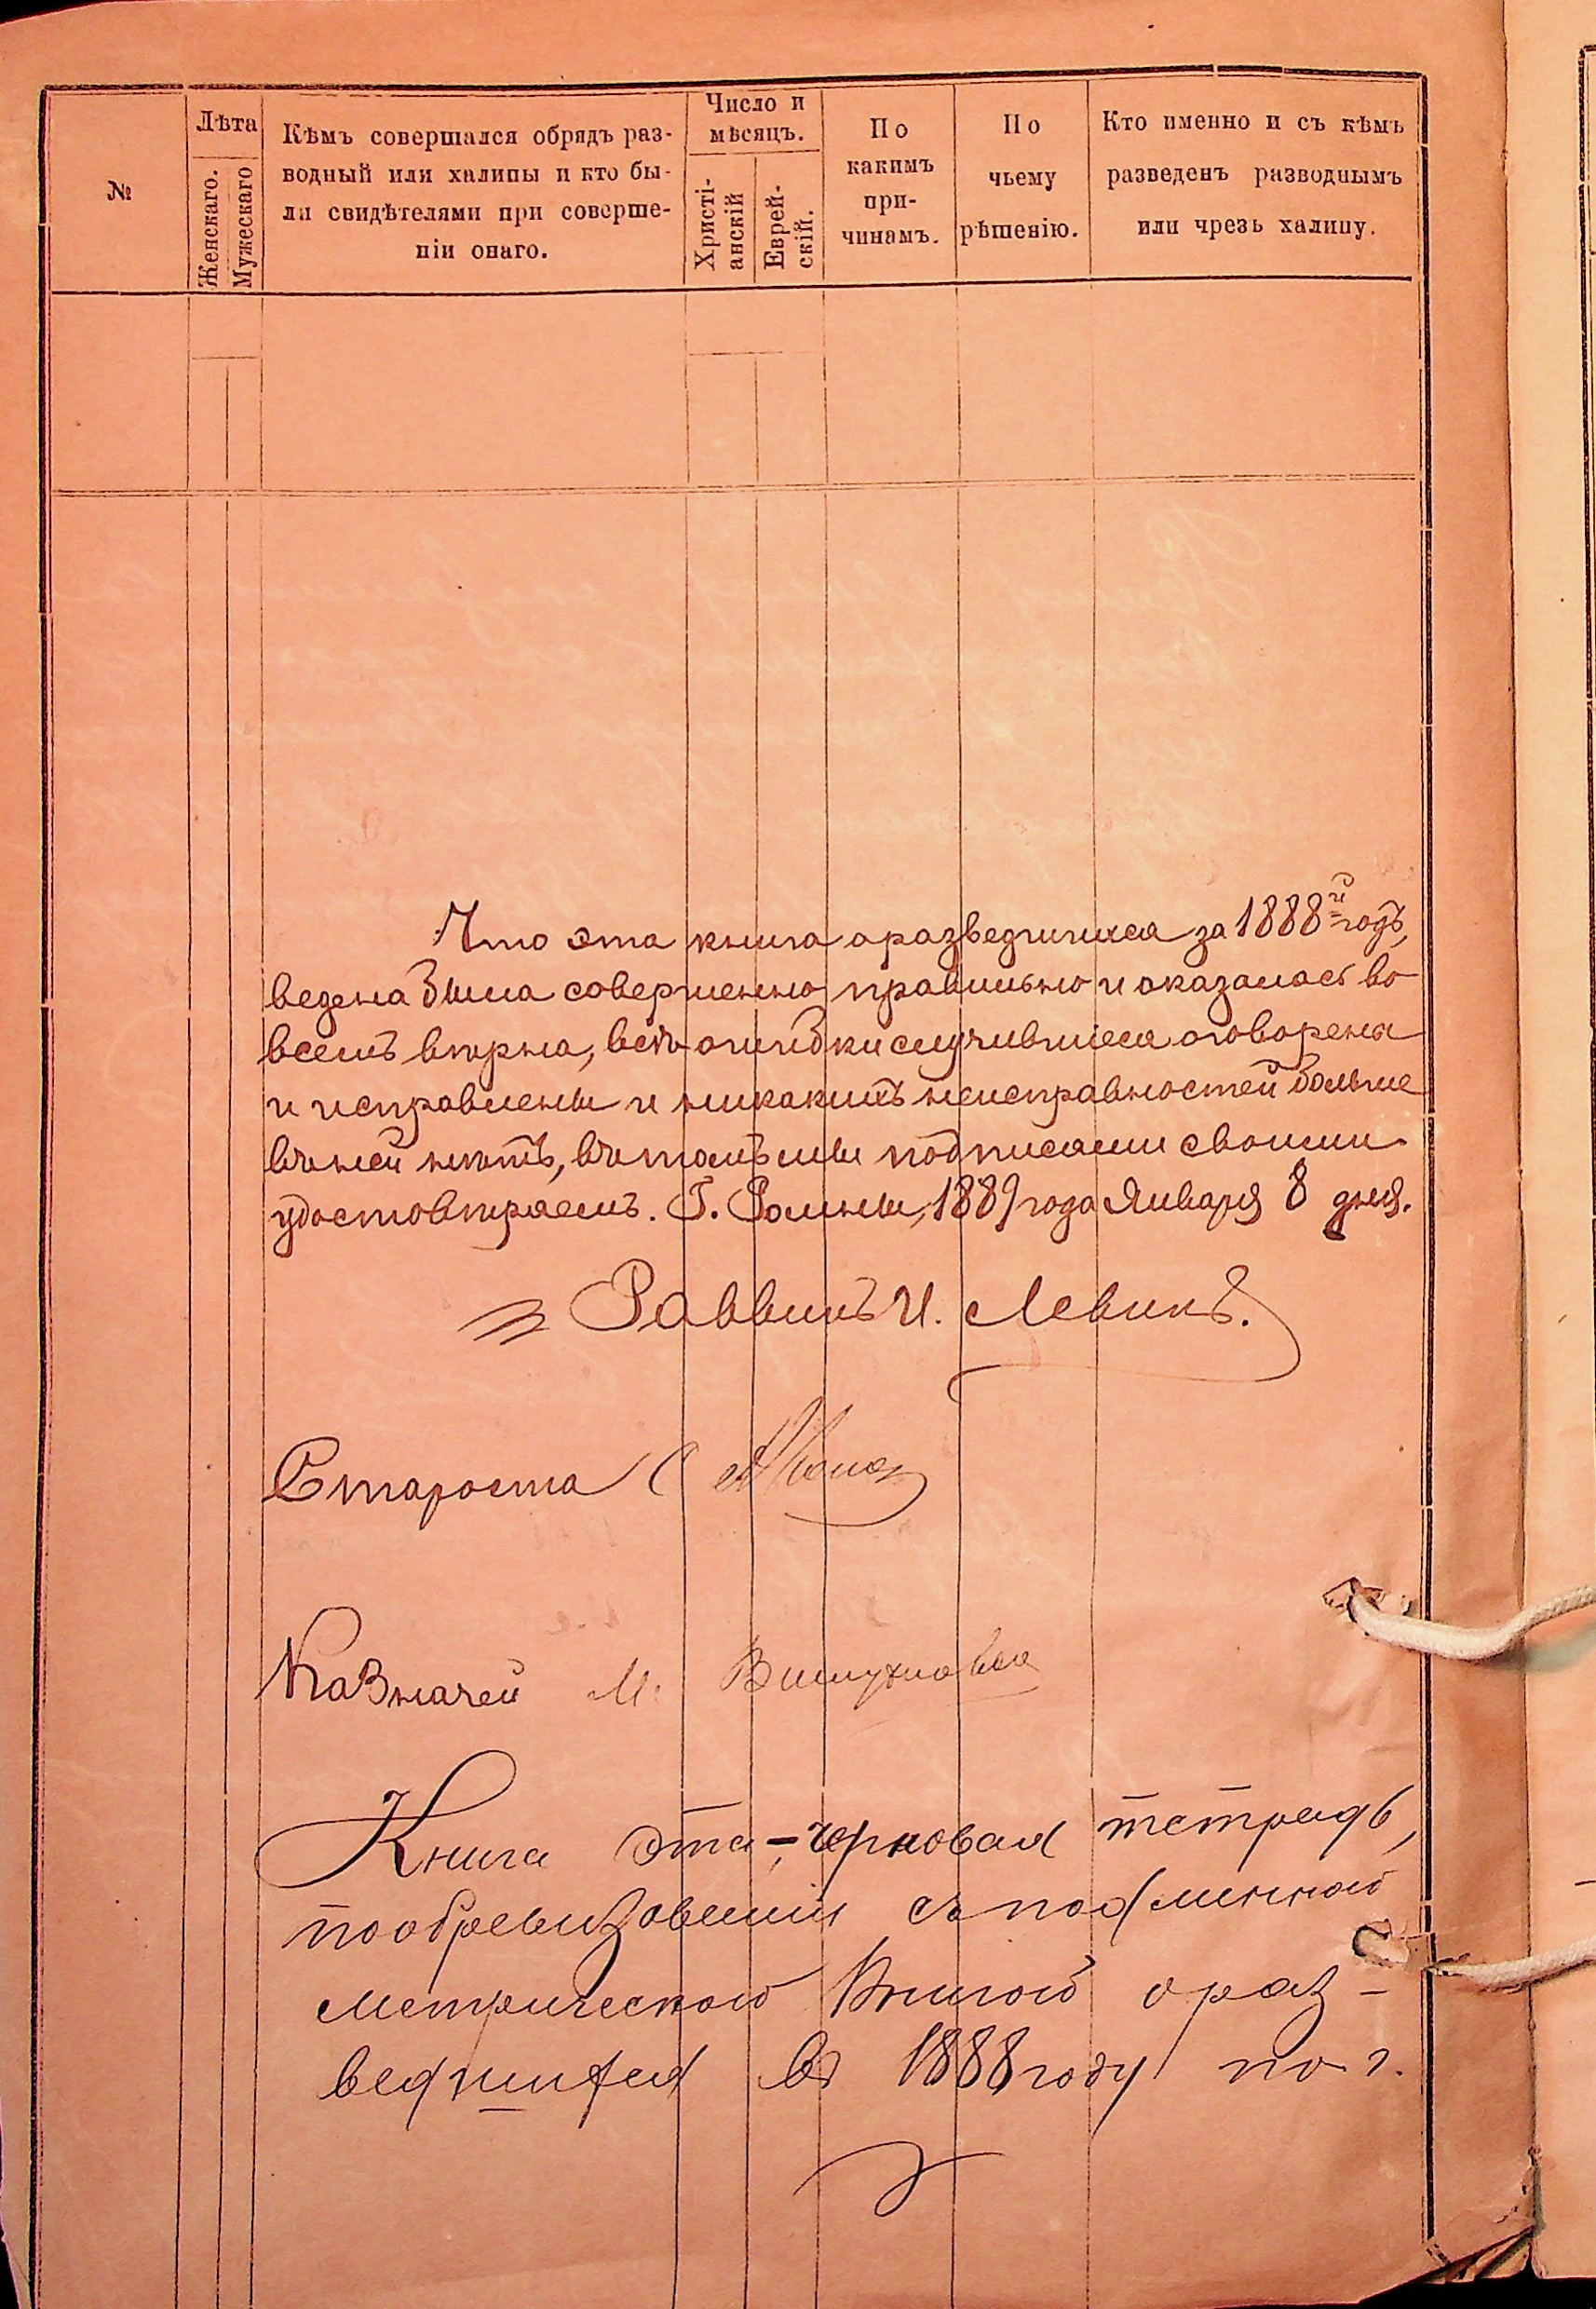 №
Лѣта
Женскаго.
Мужескаго
Кѣмъ совершался обрядъ раз-
водный или халицы и кто бы-
ли свидѣтелями при соверше-
ніи онаго.
Число и
мѣсяцъ.
Христі-
анскій
Еврей-
скій.
По
какимъ
при-
чинамъ.
По
чьему
рѣшенію.
Кто именно и съ кѣмъ
разведенъ разводнымъ
или чрезъ халицу.
Что эта книга о разведшихся за 1888й годъ,
ведена была совершенно правильно и оказалась во
всемъ вѣрна, всѣ ошибки случившіеся оговорены
и исправлены и никакихъ неисправностей больше
въ ней нѣтъ, въ томъ мы подписами своими
удостовѣряемъ. Г. Ромны, 1889 года Января 8 дня.
Раввинъ И. Левинъ.
Староста
Казначей М.
Книга эта, - черновая тетрадь,
по обревизованіи съ подлинной
метрической книгой о раз-
ведшихся въ 1888 году по г.